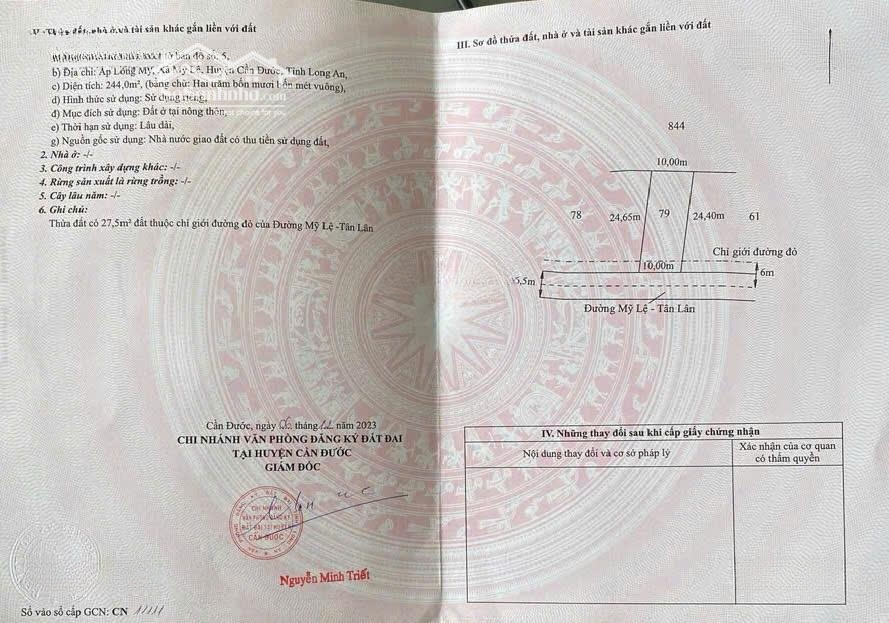 đất, nhà ở và tài sản khác gắn liền với đất
tờ bản đồ số: 5,
b) Địa chỉ: Ấp Long Mỹ, Xã Mỹ Lệ, Huyện Cần Đước, Tỉnh Long An,
c) Diện tích: 244,0m², (bằng chữ: Hai trăm bốn mươi bốn mét vuông),
d) Hình thức sử dụng: Sử dụng riêng,
đ) Mục đích sử dụng: Đất ở tại nông thôn,
e) Thời hạn sử dụng: Lâu dài,
g) Nguồn gốc sử dụng: Nhà nước giao đất có thu tiền sử dụng đất,
2. Nhà ở: -/-
3. Công trình xây dựng khác: -/-
4. Rừng sản xuất là rừng trồng: -/-
5. Cây lâu năm: -/-
6. Ghi chú:
Thửa đất có 27,5m² đất thuộc chỉ giới đường đỏ của Đường Mỹ Lệ -Tân Lân
Cần Đước, ngày tháng năm 2023
CHI NHÁNH VĂN PHÒNG ĐĂNG KÝ ĐẤT ĐAI
TẠI HUYỆN CẦN ĐƯỚC
GIÁM ĐỐC
CHI NHÁNH
VĂN PHÒNG ĐĂNG KÝ
ĐẤT ĐAI TẠI HUYỆN
CẦN ĐƯỚC
Nguyễn Minh Triết
Số vào sổ cấp GCN: CN
III. Sơ đồ thửa đất, nhà ở và tài sản khác gắn liền với đất
844
10,00m
78
24,65m
79
24,40m
61
Chỉ giới đường đỏ
10,00m
6m
5,5m
Đường Mỹ Lệ - Tân Lân
IV. Những thay đổi sau khi cấp giấy chứng nhận
Nội dung thay đổi và cơ sở pháp lý
Xác nhận của cơ quan
có thẩm quyền